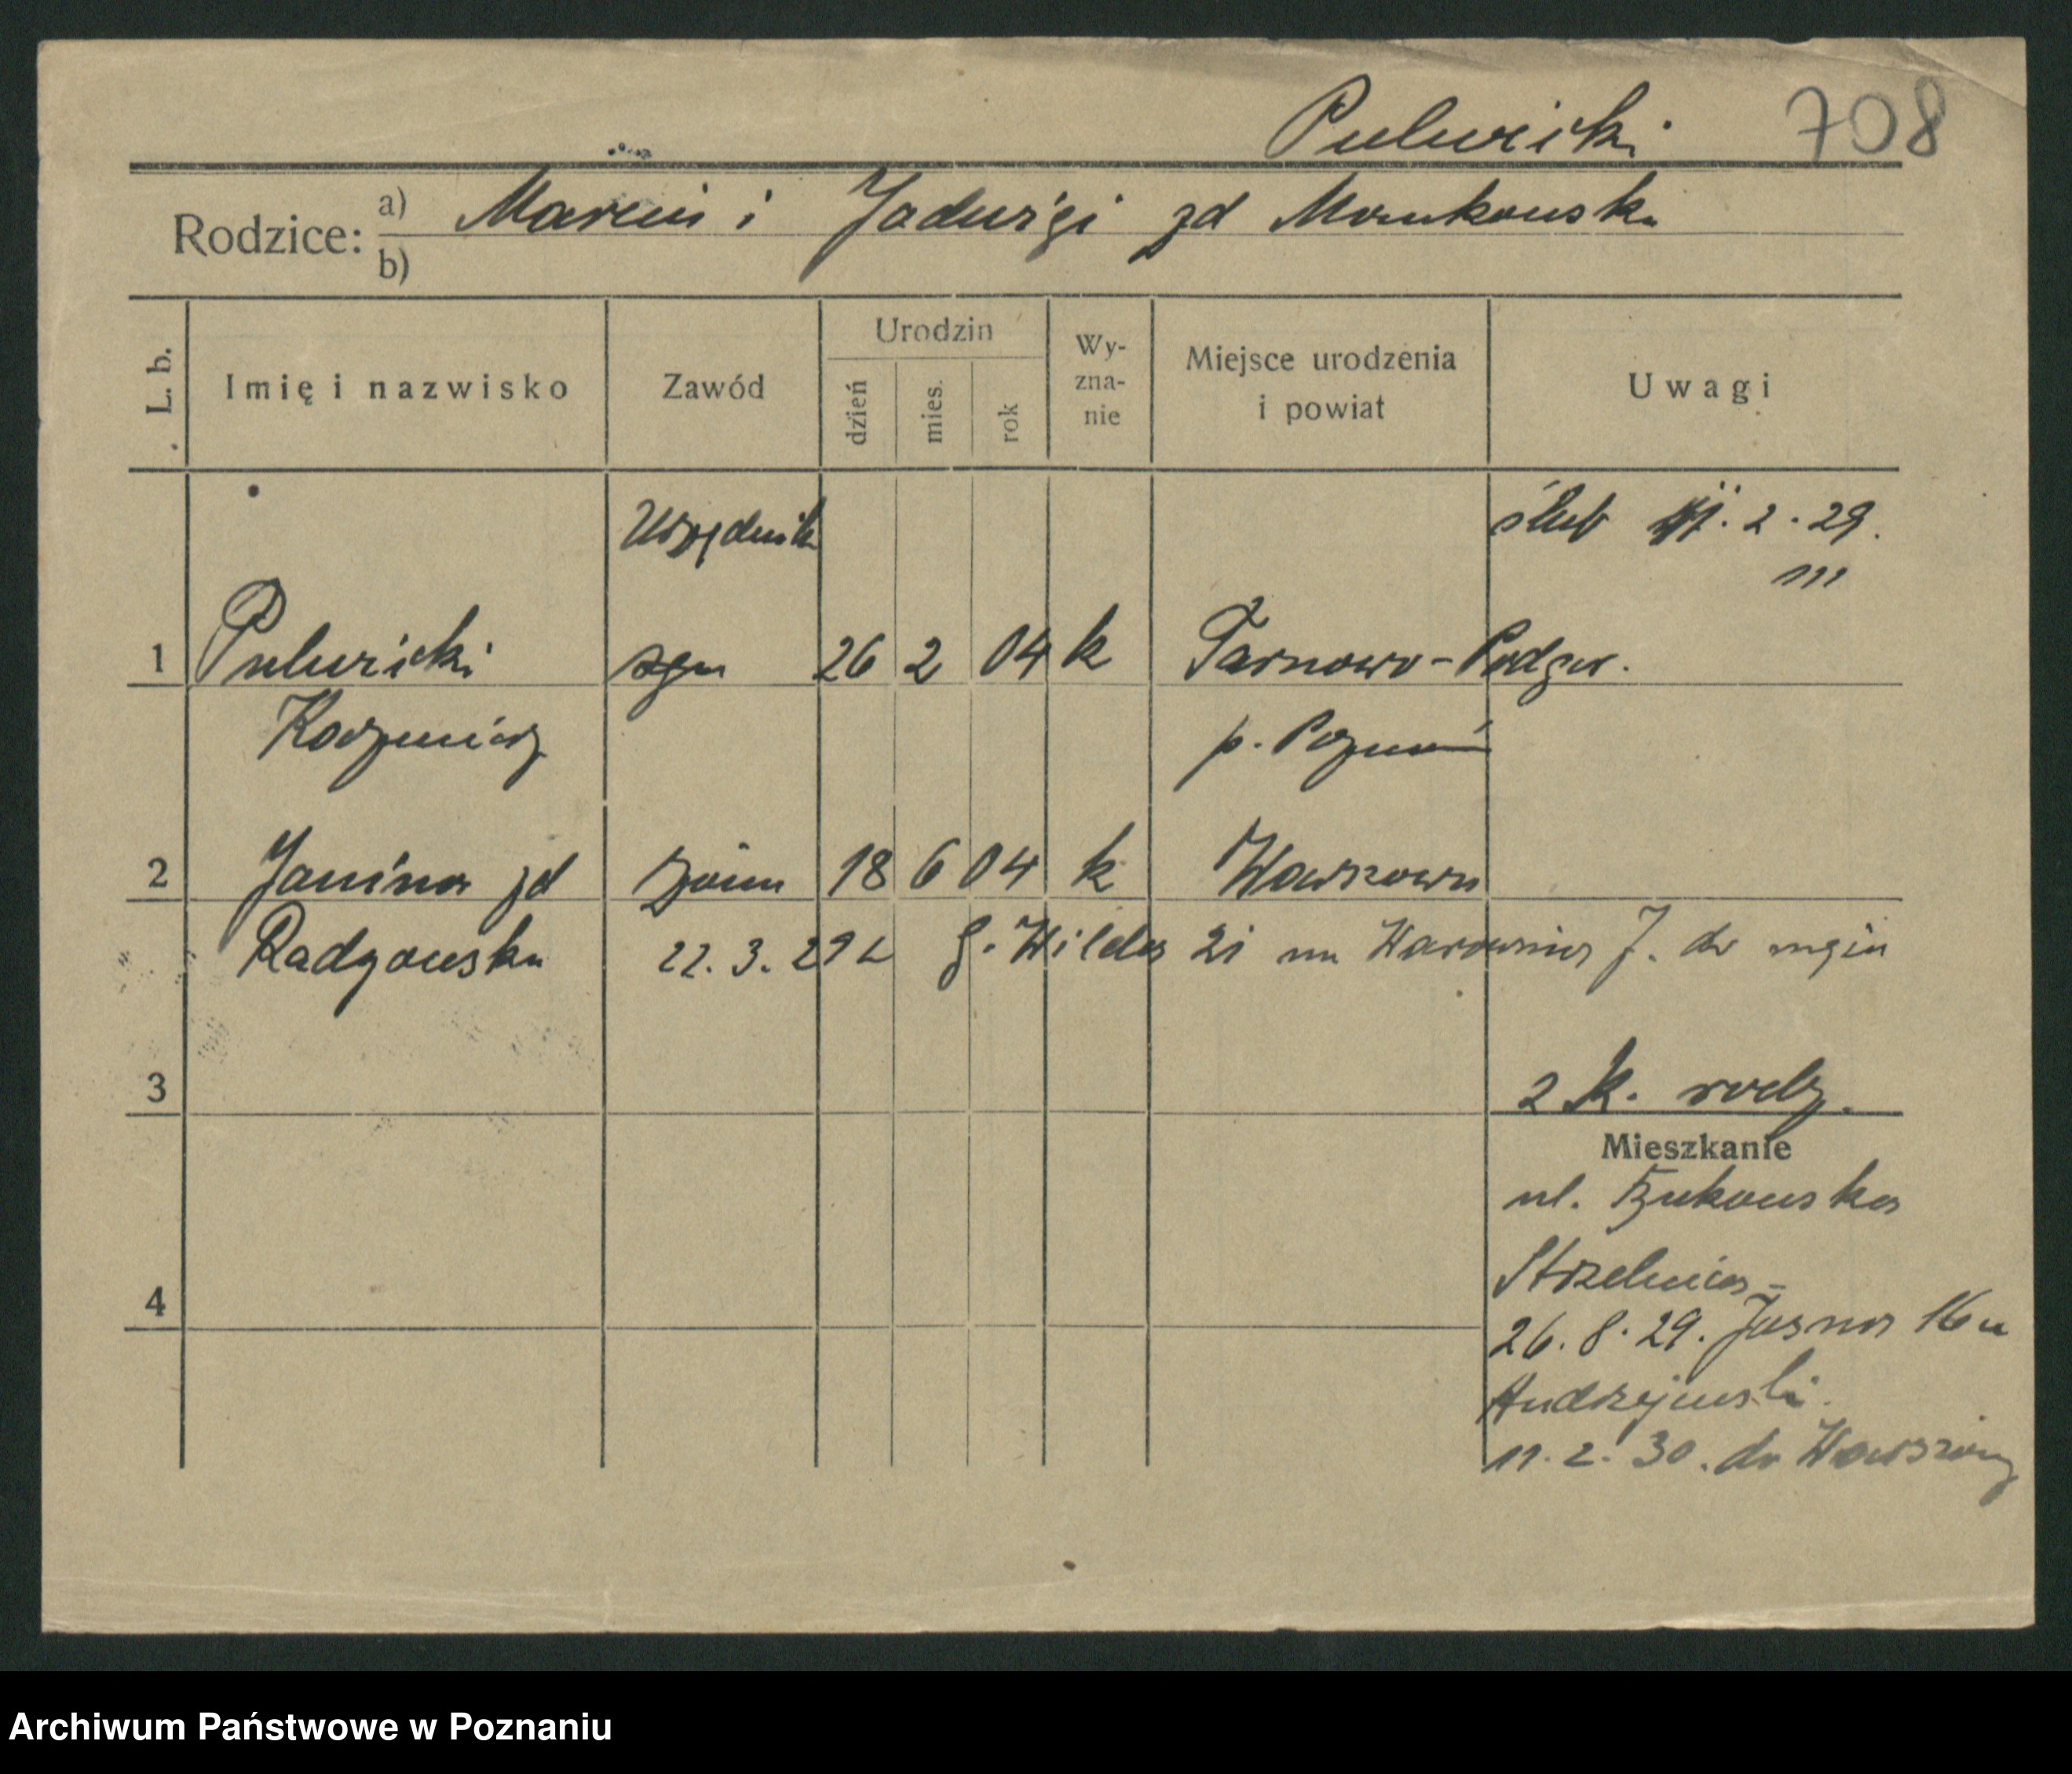 Pulwicki 708
Rodzice: a) Marcin i Jadwigi zd Mankowska
b)
L. b. Imię i nazwisko Zawód Urodzin dzień mies. rok Wy-zna-nie Miejsce urodzenia i powiat Uwagi
Urzędnik ślub 2 . 29.
1 Pulwicki 26 2 04 k Tarnowo-Podgór.
Kazimierz p. Poznań
2 Janina zd żona 18 6 04 k Warszawa
Radzowska 22. 3. 29 g. Wilda 21 na J. do
3 2 k. rodz.
Mieszkanie
ul. Bukowska
4 Strzelnica-
26. 8. 29. Jasna 16
Andrzejewski.
11. 2. 30. do Warszawy
Archiwum Państwowe w Poznaniu